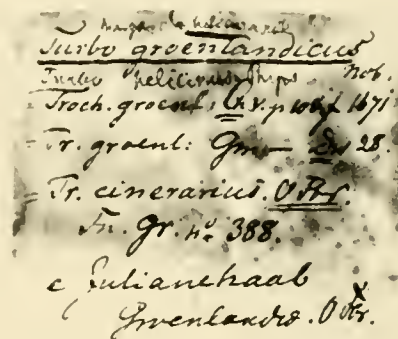 Margarita helicina
Turbo groenlandicus
Turbo helicinus Phips nob.
= Troch. groenl: Ch. V. p 1671
= Tr. groenl: Gm— 28.
= Tr. cinerarius. O Fbr.
Fn. Gr. no 388.
c Julianehaab
Groenlandiæ. O Fbr.